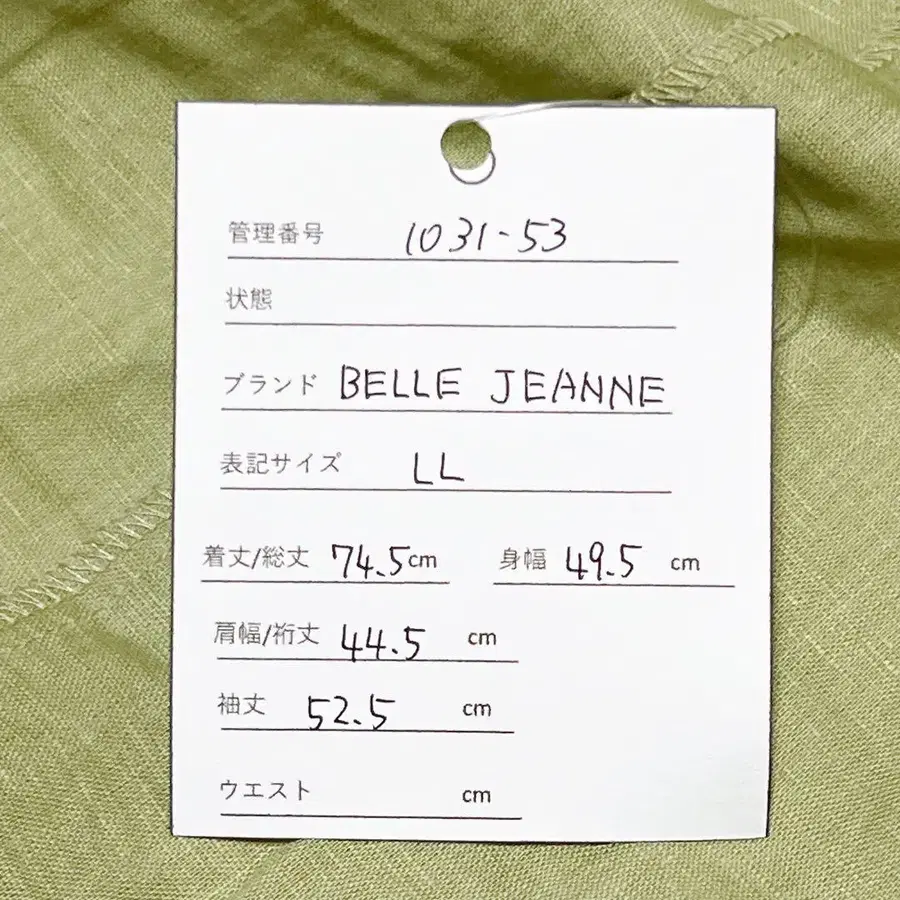 管理番号 1031-53
状態
ブランド BELLE JEANNE
表記サイズ LL
着丈/総丈 74.5cm 身幅 49.5 cm
肩幅/裄丈 44.5 cm
袖丈 52.5 cm
ウエスト cm